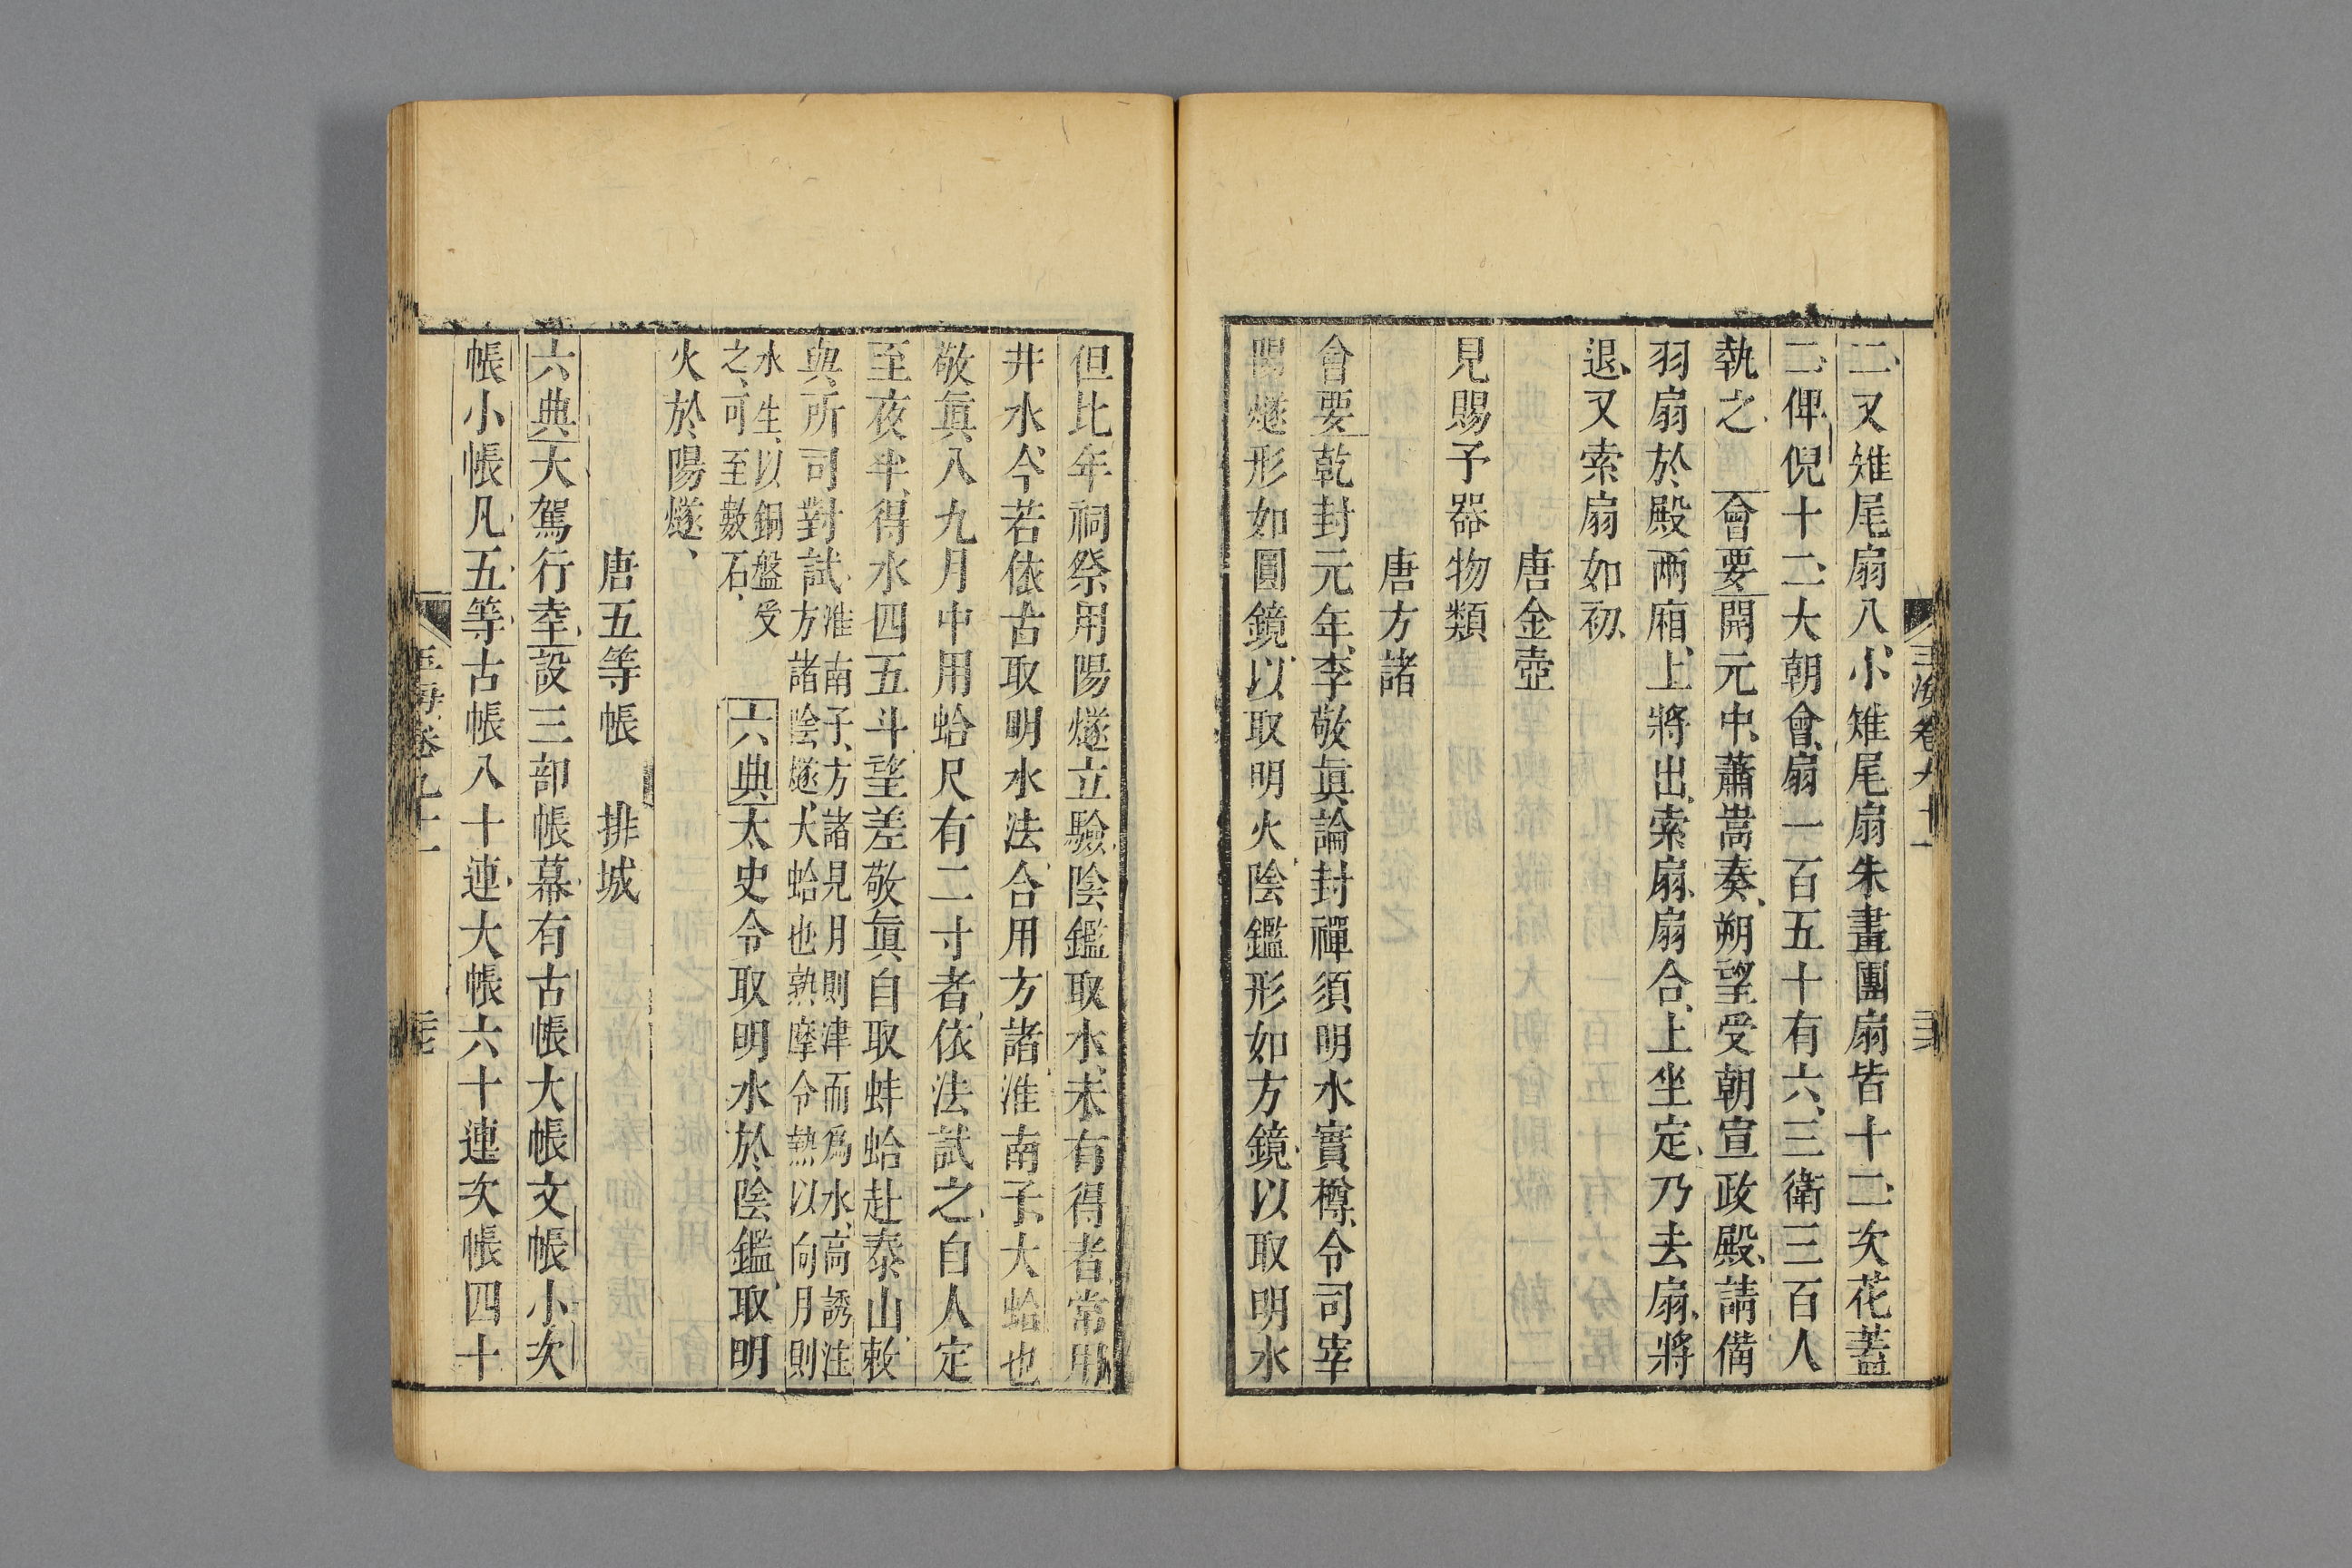 二又雉尾扇八小雉尾扇朱畫團扇皆十二次花蓋
二俾倪十二大朝會扇一百五十有六三衛三百人
執之 會要開元中蕭嵩奏朔望受朝宣政殿請備
羽扇於殿兩廂上將出索扇扇合上坐定乃去扇將
退又索扇如初
唐金壺
見賜予器物類
唐方諸
會要乾封元年李敬眞論封禪須明水實樽令司宰
陽燧形如圓鏡以取明火陰鑑形如方鏡以取明水
但比年祠祭用陽燧立驗陰鑑取水未有得者常用
井水今若依古取明水法合用方諸淮南子大蛤也
敬眞八九月中用蛤尺有二寸者依法試之自人定
至夜半得水四五斗望差敬眞自取蚌蛤赴泰山敕
與所司對試淮南子方諸見月則津而爲水高誘注
方諸陰燧大蛤也熟摩令熱以向月則
水生以銅盤受
之可至數石 六典太史令取明水於陰鑑取明
火於陽燧
唐五等帳 排城
六典大駕行幸設三部帳幕有古帳大帳文帳小次
帳小帳凡五等古帳八十連大帳六十連次帳四十
玉海卷九十一